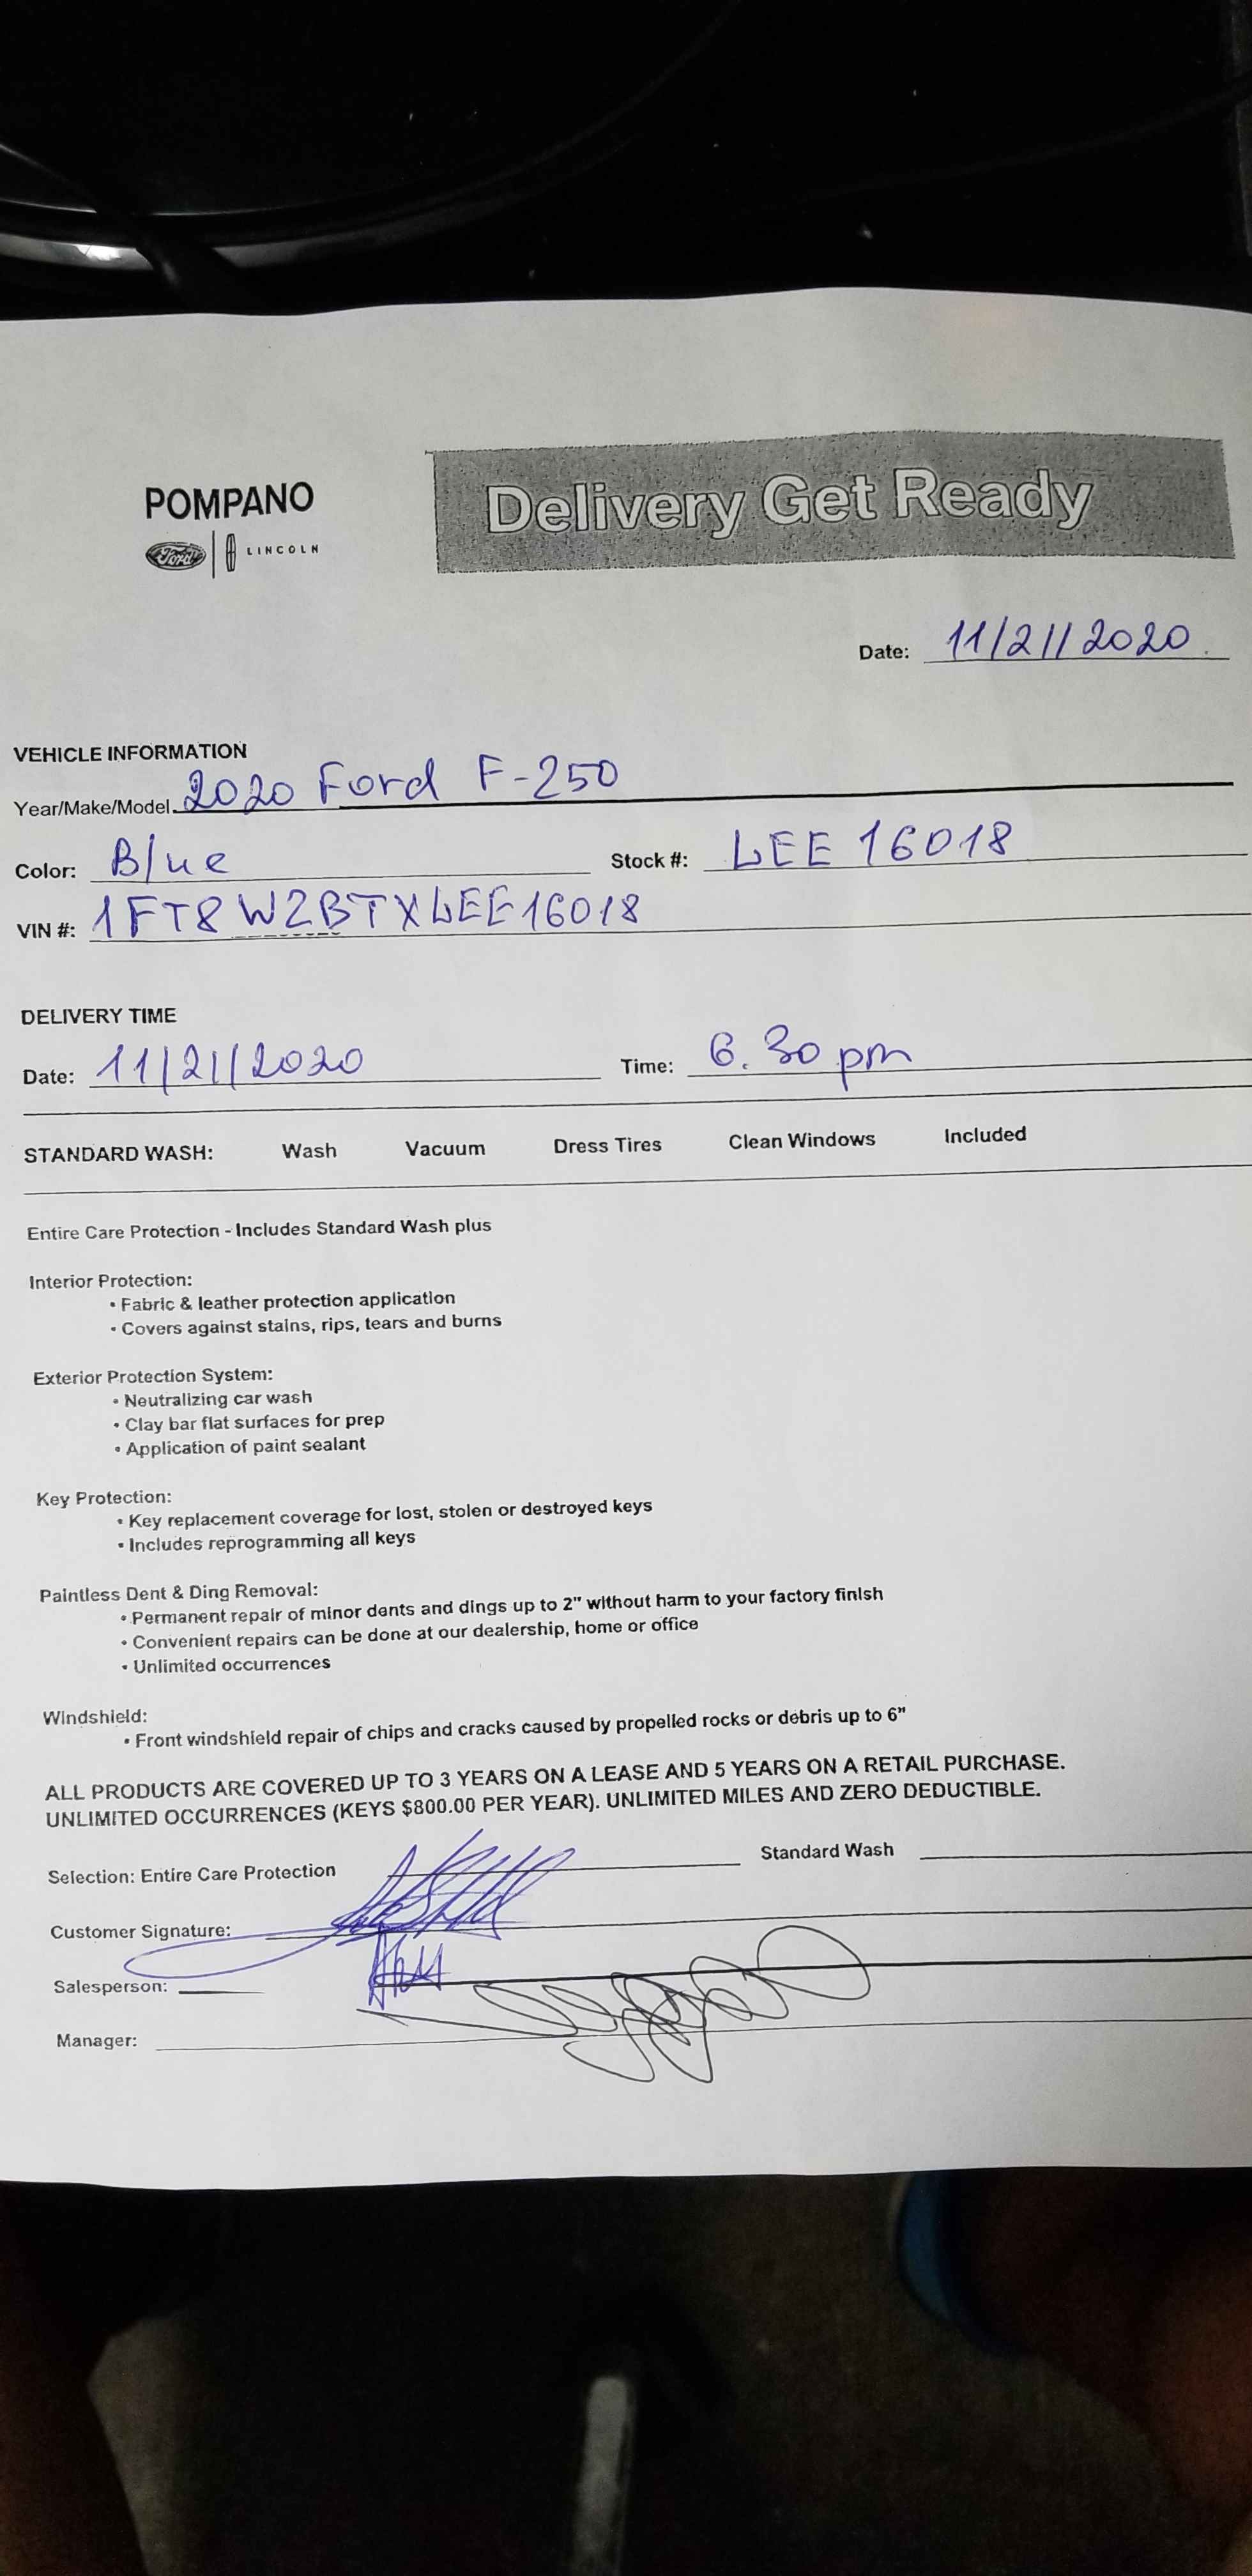 POMPANO
Ford | LINCOLN
Delivery Get Ready
Date: 11/21/2020
VEHICLE INFORMATION
Year/Make/Model 2020 Ford F-250
Color: Blue Stock #: LEE 16018
VIN #: 1FT8W2BTXLEE16018
DELIVERY TIME
Date: 11/21/2020 Time: 6.30 pm
STANDARD WASH: Wash Vacuum Dress Tires Clean Windows Included
Entire Care Protection - Includes Standard Wash plus
Interior Protection:
• Fabric & leather protection application
• Covers against stains, rips, tears and burns
Exterior Protection System:
• Neutralizing car wash
• Clay bar flat surfaces for prep
• Application of paint sealant
Key Protection:
• Key replacement coverage for lost, stolen or destroyed keys
• Includes reprogramming all keys
Paintless Dent & Ding Removal:
• Permanent repair of minor dents and dings up to 2" without harm to your factory finish
• Convenient repairs can be done at our dealership, home or office
• Unlimited occurrences
Windshield:
• Front windshield repair of chips and cracks caused by propelled rocks or debris up to 6"
ALL PRODUCTS ARE COVERED UP TO 3 YEARS ON A LEASE AND 5 YEARS ON A RETAIL PURCHASE.
UNLIMITED OCCURRENCES (KEYS $800.00 PER YEAR). UNLIMITED MILES AND ZERO DEDUCTIBLE.
Selection: Entire Care Protection Standard Wash
Customer Signature:
Salesperson:
Manager: